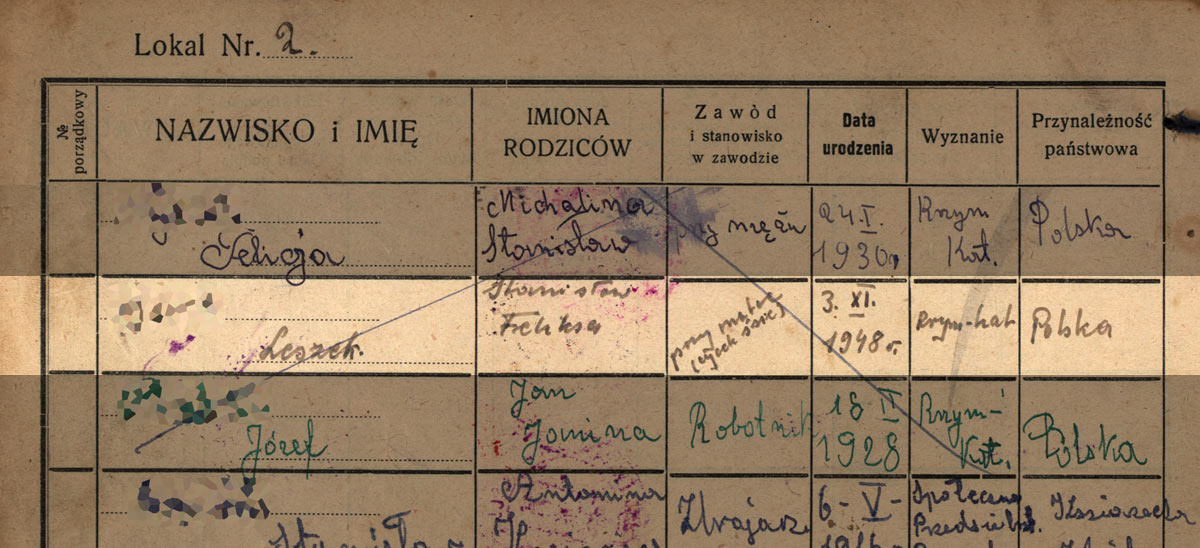 Lokal Nr. 2.
№ porządkowy
NAZWISKO i IMIĘ
IMIONA
RODZICÓW
Zawód
i stanowisko
w zawodzie
Data
urodzenia
Wyznanie
Przynależność
państwowa
Felicja
Michalina
Stanisław
przy mężu
24. I.
1930r
Rzym
Kat.
Polska
Leszek.
Stanisław
Feliksa
przy matce
3. XI.
1948 r.
Rzym-kat
Polska
Józef
Jan
Janina
Robotnik
18 II
1928
Rzym-
Kat.
Polska
Antonina
6 - V -